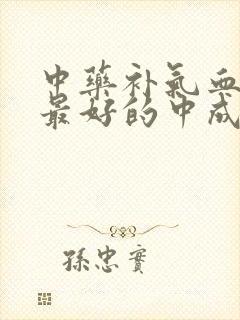 中藥补氣血
最好的中成
孫忠實